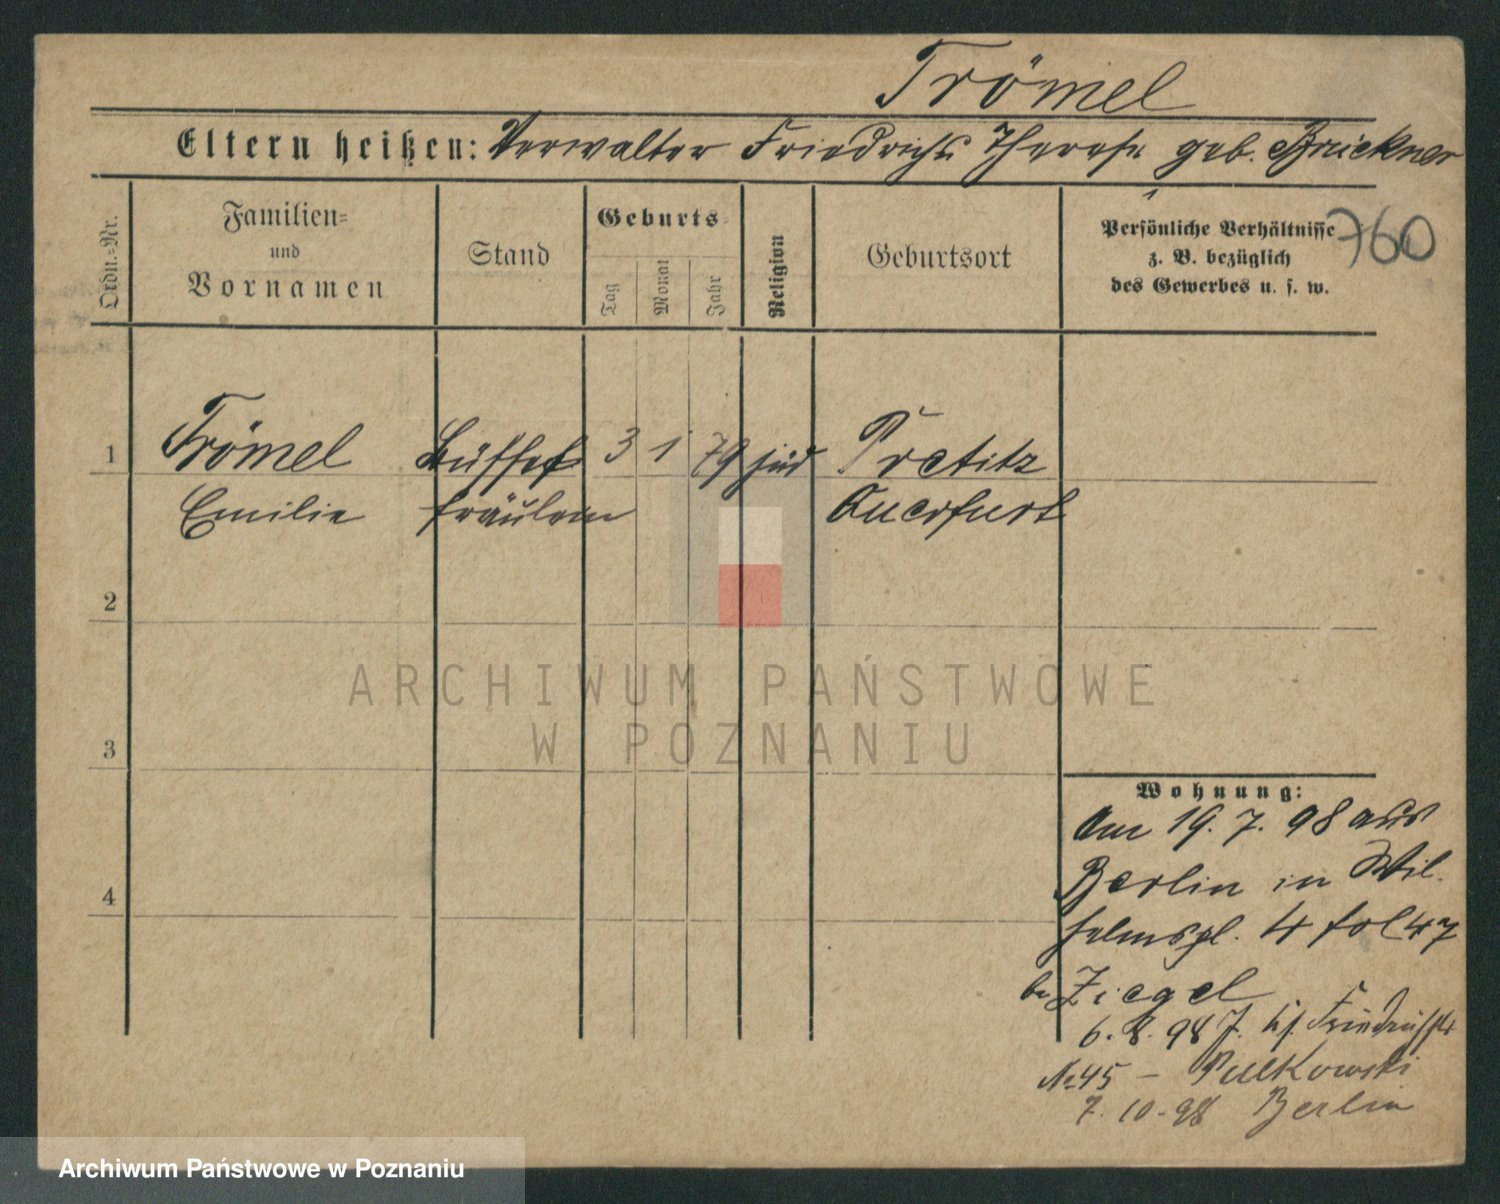 Trömel
Eltern heißen: Verwalter Friedrich u. Therese geb. Brückner
Ordn.-Nr.
Familien-
und
Vornamen
Stand
Geburts-
Tag
Monat
Jahr
Religion
Geburtsort
Persönliche Verhältnisse
z. B. bezüglich
des Gewerbes u. s. w.
760
1
Trömel Büffet 3 1 79 jüd Pretitz
Emilie fräulein Querfurt
2
3
4
ARCHIWUM PAŃSTWOWE
W POZNANIU
Wohnung:
Am 19. 7. 98 aus
Berlin in Wil-
helmspl. 4 fol 47
bei Ziegel
6. 8. 98 Friedrichstr
No 45 – Pulkowski
7. 10. 98 Berlin
Archiwum Państwowe w Poznaniu